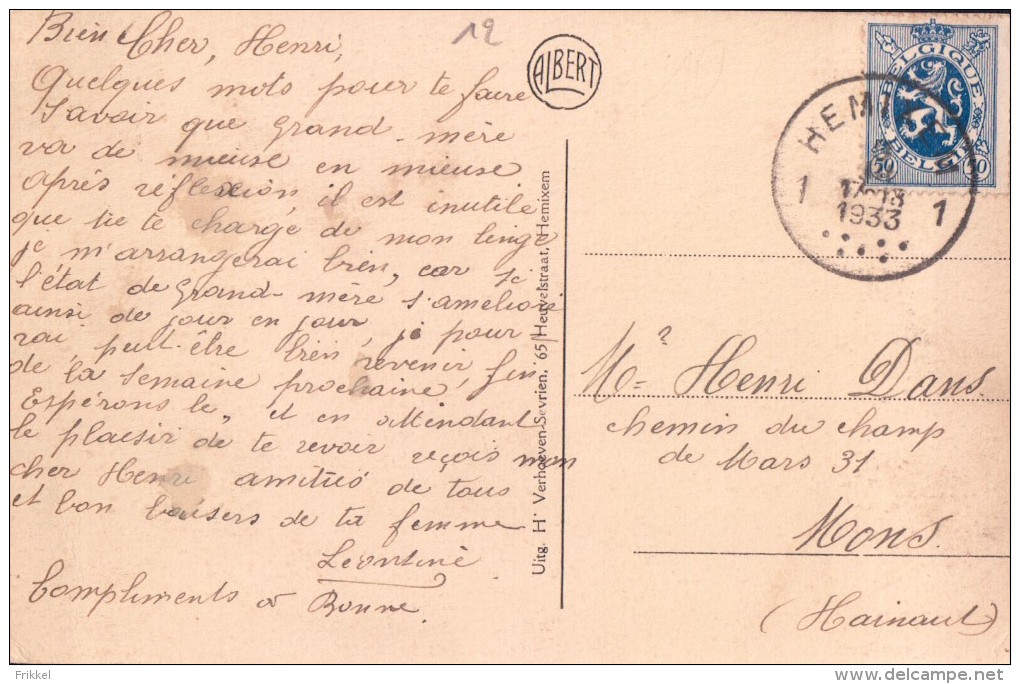 Bien Cher, Henri,
Quelques mots pour te faire
savoir que grand-mère
va de mieuse en mieuse
après réflexion, il est inutile
que tu te charge de mon linge
je m'arrangerai bien, car si
l'état de grand-mère s'améliore
ainsi de jour en jour, je pour
rai, peut-être bien revenir, fin
de la semaine prochaine,
Espérons le, et en attendant
le plaisir de te revoir reçois mon
cher Henri amitiés de tous
et bon baisers de ta femme
Léontine
Compliments à Bonne
12
ALBERT
Uitg. Hr Verhoeven-Sevrien, 65, Heuvelstraat, Hemixem
BELGIQUE
BELGIE
50
50
HEMIXEM
1
1
17-18
1933
Mr Henri Dans.
chemin du champ
de Mars 31
Mons.
(Hainaut)
Frikkel
www.delcampe.net